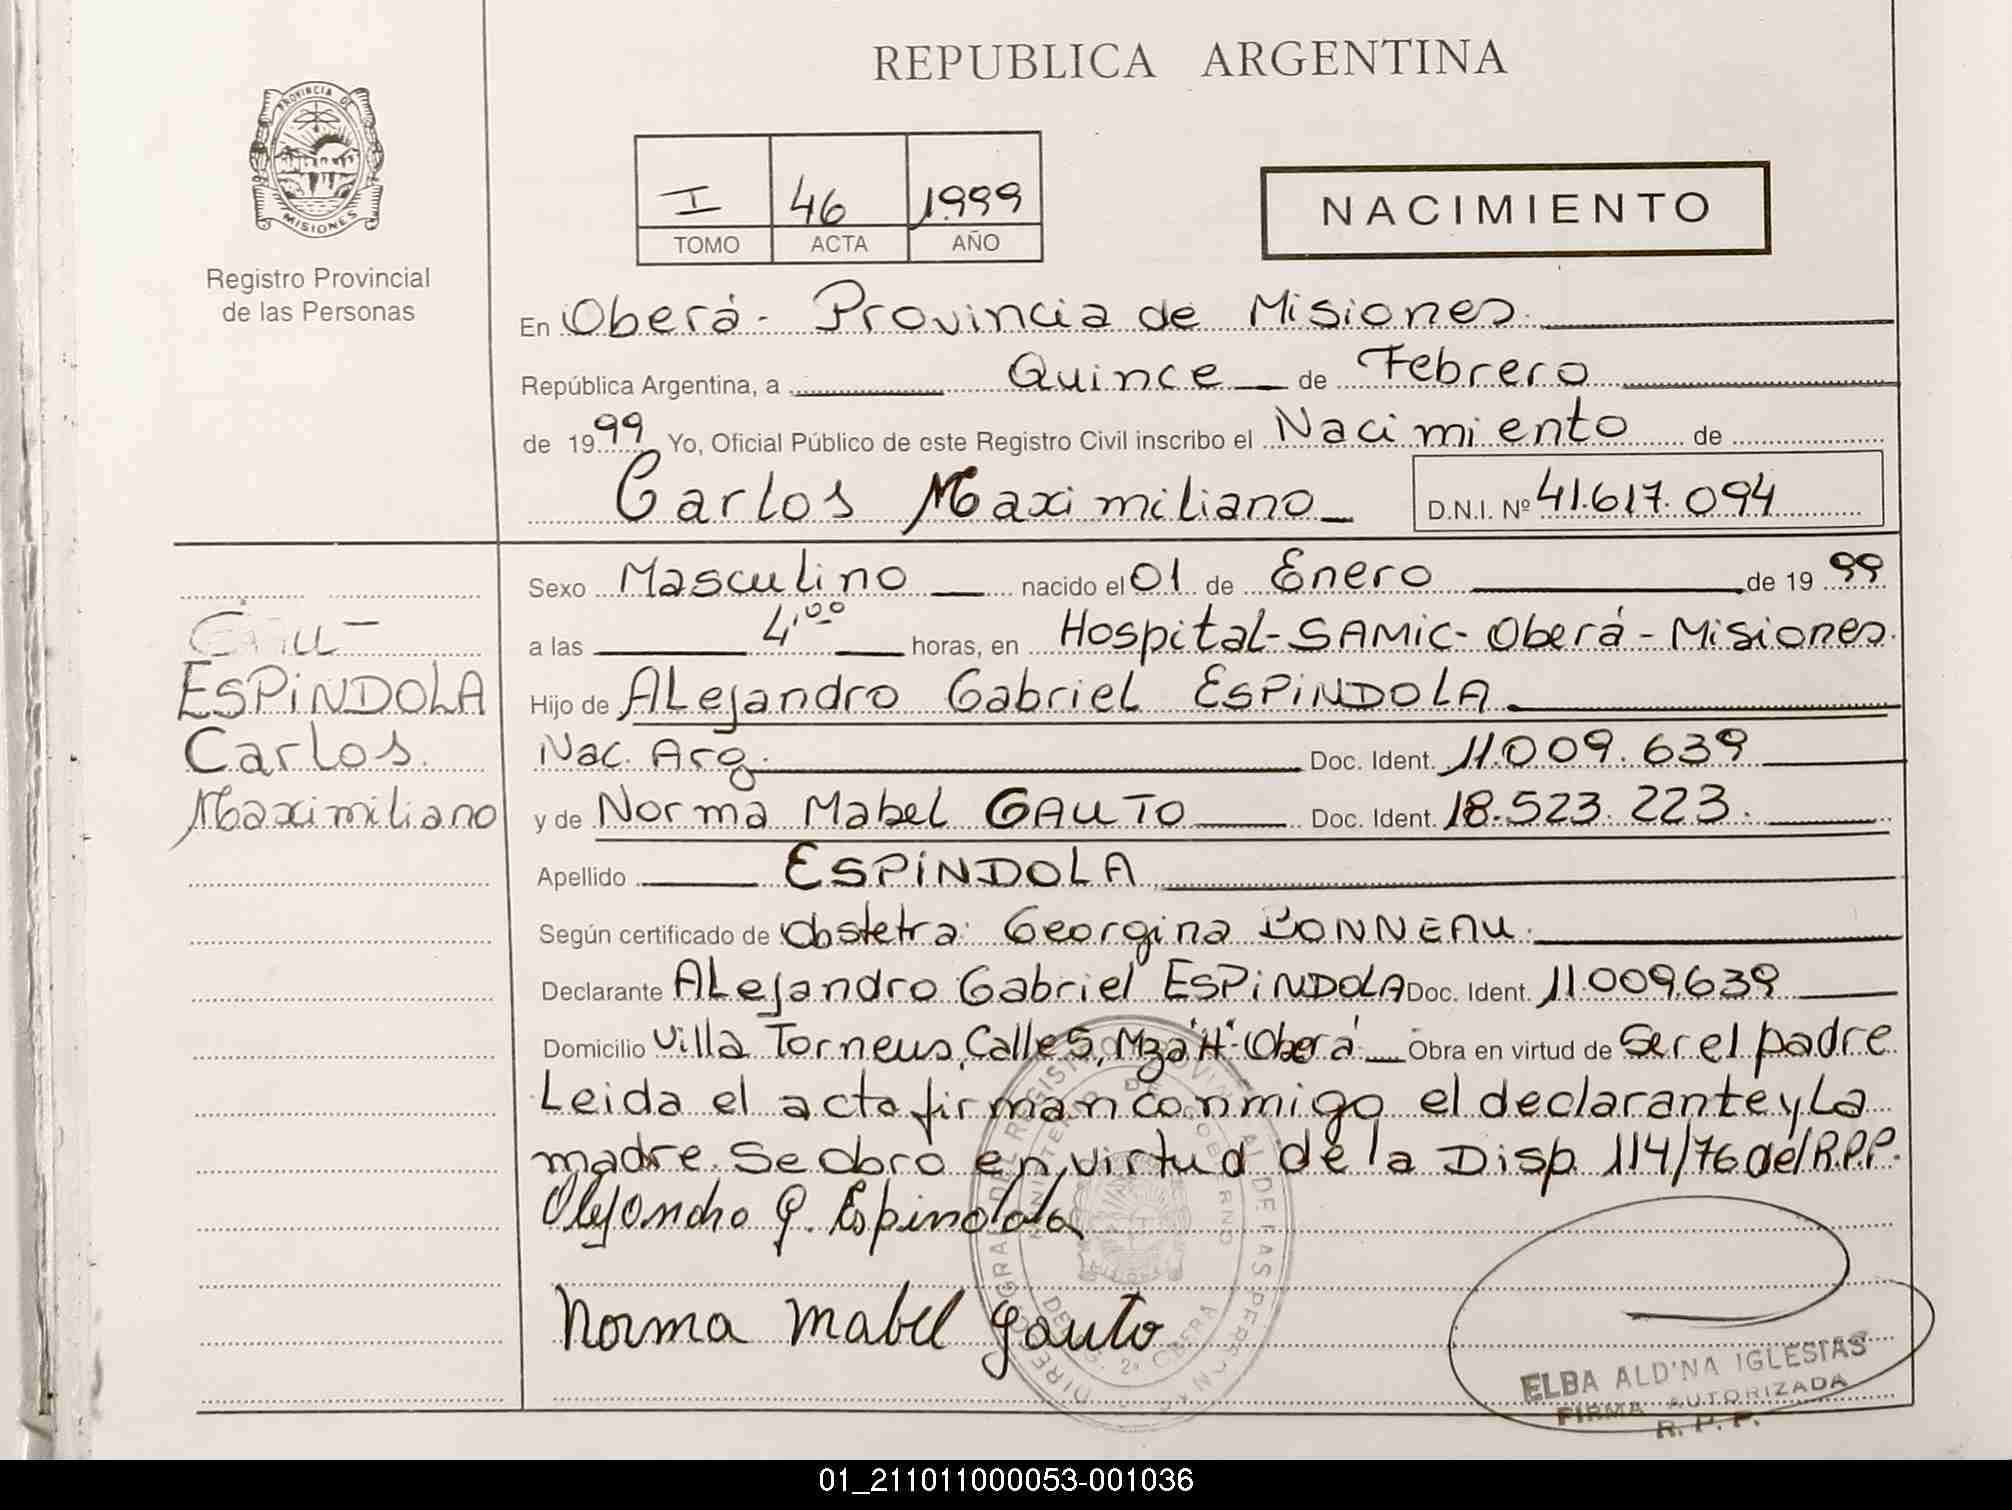 REPUBLICA ARGENTINA
PROVINCIA DE
MISIONES
Registro Provincial
de las Personas
I 46 1999
TOMO ACTA AÑO
NACIMIENTO
En Oberá - Provincia de Misiones.
República Argentina, a Quince de Febrero
de 1999 Yo, Oficial Público de este Registro Civil inscribo el Nacimiento de
Carlos Maximiliano D.N.I. Nº 41.617.094
Sexo Masculino nacido el 01 de Enero de 1999
a las 4,00 horas, en Hospital-SAMIC-Oberá-Misiones.
ESPINDOLA
Carlos
Maximiliano
Hijo de Alejandro Gabriel ESPINDOLA
Nac. Arg. Doc. Ident. 11.009.639
y de Norma Mabel GAUTO Doc. Ident. 18.523.223.
Apellido ESPINDOLA
Según certificado de Obstetra: Georgina BONNEAU.
Declarante Alejandro Gabriel ESPINDOLA Doc. Ident. 11.009.639
Domicilio Villa Torneus, Calle 5, Mza "H"-Oberá Obra en virtud de Ser el padre
Leida el acta firman conmigo el declarante y La
madre. Se obro en virtud de la Disp. 114/76 del R.P.P.
Alejandro G. Espindola
Norma Mabel Gauto
ELBA ALDINA IGLESIAS
FIRMA AUTORIZADA
R. P. P.
01_211011000053-001036